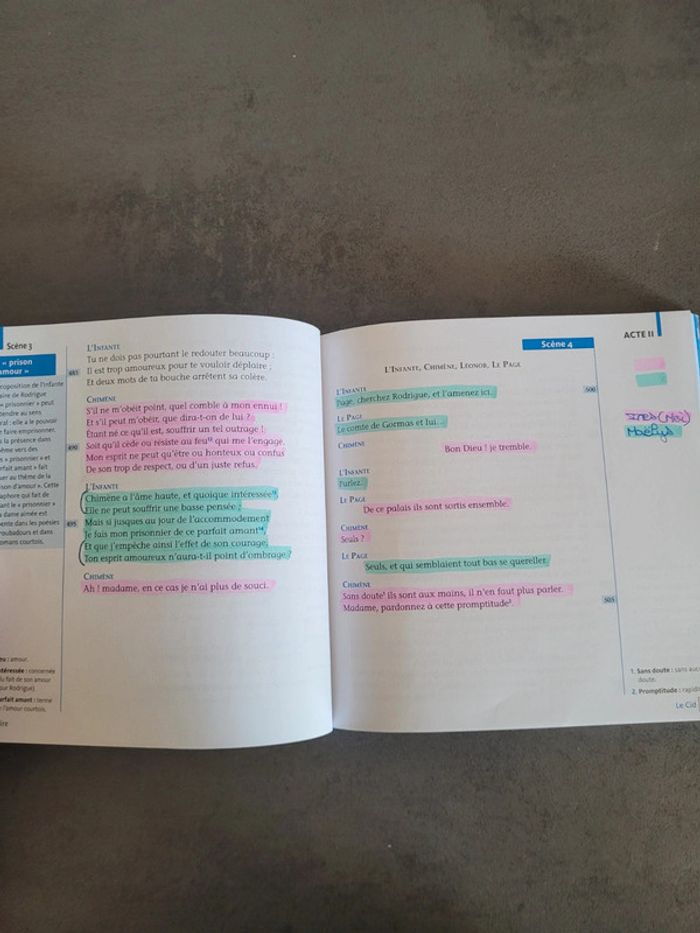 Scène 3
« prison
amour »
coposition de l'Infante
aire de Rodrigue
« prisonnier » peut
endre au sens
éral : elle a le pouvoir
faire emprisonner.
la présence dans
ème vers des
« prisonnier » et
rfait amant » fait
er au thème de la
son d'amour ». Cette
aphore qui fait de
ant le « prisonnier »
dame aimée est
ente dans les poésies
roubadours et dans
omans courtois.
L'Infante
Tu ne dois pas pourtant le redouter beaucoup :
Il est trop amoureux pour te vouloir déplaire ;
485 Et deux mots de ta bouche arrêtent sa colère.
Chimène
S'il ne m'obéit point, quel comble à mon ennui !
Et s'il peut m'obéir, que dira-t-on de lui ?
Étant né ce qu'il est, souffrir un tel outrage !
490 Soit qu'il cède ou résiste au feu¹² qui me l'engage,
Mon esprit ne peut qu'être ou honteux ou confus
De son trop de respect, ou d'un juste refus.
L'Infante
Chimène a l'âme haute, et quoique intéressée¹³,
Elle ne peut souffrir une basse pensée ;
495 Mais si jusques au jour de l'accommodement
Je fais mon prisonnier de ce parfait amant¹⁴,
Et que j'empêche ainsi l'effet de son courage,
Ton esprit amoureux n'aura-t-il point d'ombrage ?
Chimène
Ah ! madame, en ce cas je n'ai plus de souci.
eu : amour.
téressée : concernée
u fait de son amour
our Rodrigue).
arfait amant : terme
e l'amour courtois.
ire
ACTE II
Scène 4
L'Infante, Chimène, Léonor, Le Page
L'Infante
Page, cherchez Rodrigue, et l'amenez ici. 500
Le Page
Le comte de Gormas et lui...
Chimène
Bon Dieu ! je tremble.
L'Infante
Parlez.
Le Page
De ce palais ils sont sortis ensemble.
Chimène
Seuls ?
Le Page
Seuls, et qui semblaient tout bas se quereller.
Chimène
Sans doute¹ ils sont aux mains, il n'en faut plus parler.
Madame, pardonnez à cette promptitude². 505
Ines (Moi)
Maëlys
1. Sans doute : sans auc
doute.
2. Promptitude : rapidi
Le Cid